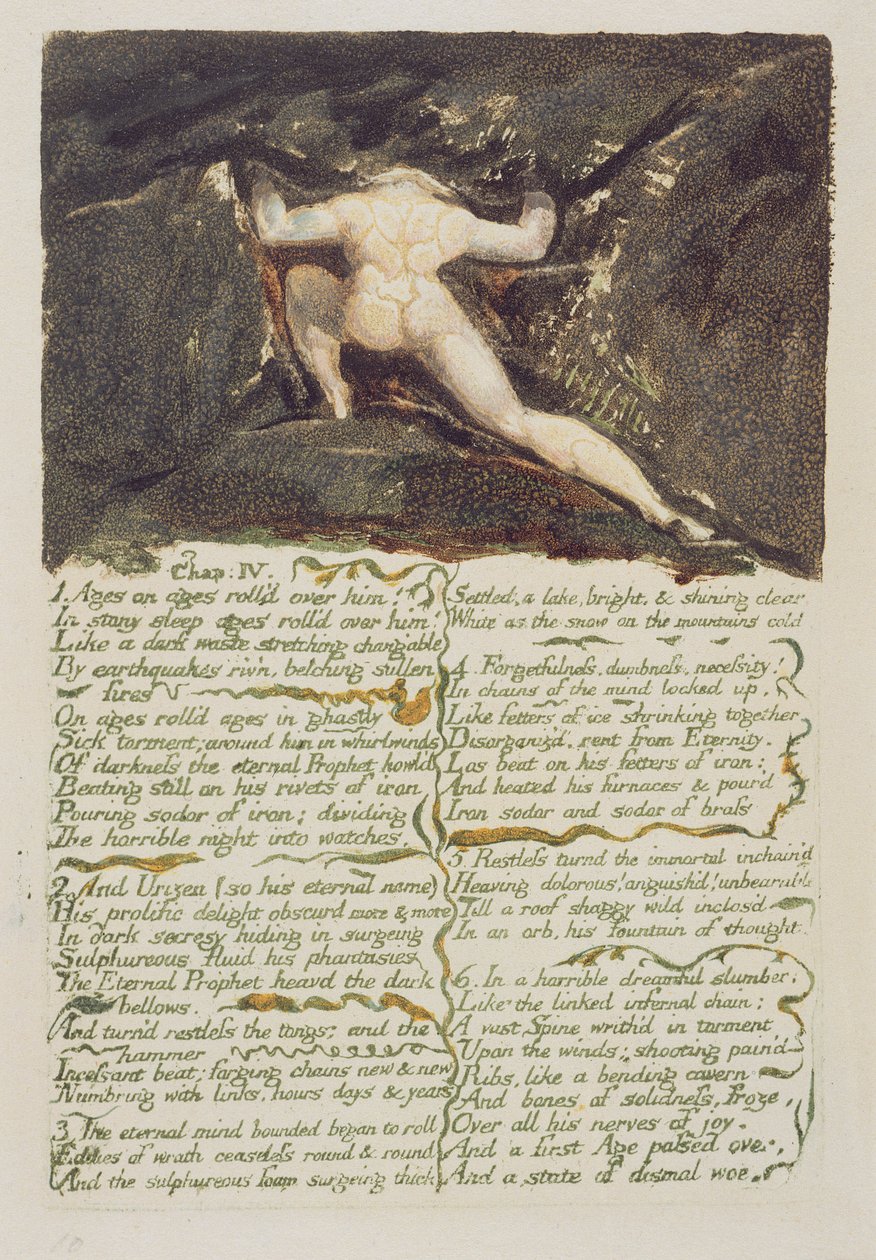 Chap: IV.
1. Ages on ages roll'd over him!
In stony sleep ages roll'd over him!
Like a dark waste stretching changable
By earthquakes riv'n, belching sullen
fires
On ages roll'd ages in ghastly
Sick torment; around him in whirlwinds
Of darkness the eternal Prophet howl'd
Beating still on his rivets of iron
Pouring sodor of iron; dividing
The horrible night into watches.
2. And Urizen (so his eternal name)
His prolific delight obscurd more & more
In dark secresy hiding in surgeing
Sulphureous fluid his phantasies.
The Eternal Prophet heavd the dark
bellows.
And turn'd restless the tongs; and the
hammer
Incessant beat; forging chains new & new
Numb'ring with links, hours days & years
3. The eternal mind bounded began to roll
Eddies of wrath ceaseless round & round
And the sulphureous foam surgeing thick
Settled, a lake, bright, & shining clear
White as the snow on the mountains cold
4. Forgetfulness, dumbness, necessity!
In chains of the mind locked up,
Like fetters of ice shrinking together
Disorganiz'd, rent from Eternity.
Los beat on his fetters of iron;
And heated his furnaces & pour'd
Iron sodor and sodor of brass
5. Restless turnd the immortal inchain'd
Heaving dolorous! anguish'd! unbearable
Till a roof shaggy wild inclos'd
In an orb, his fountain of thought.
6. In a horrible dreamful slumber;
Like the linked infernal chain;
A vast Spine writh'd in torment
Upon the winds; shooting pain'd
Ribs, like a bending cavern
And bones of solidness, froze,
Over all his nerves of joy.
And a first Age passed over,
And a state of dismal woe.
10